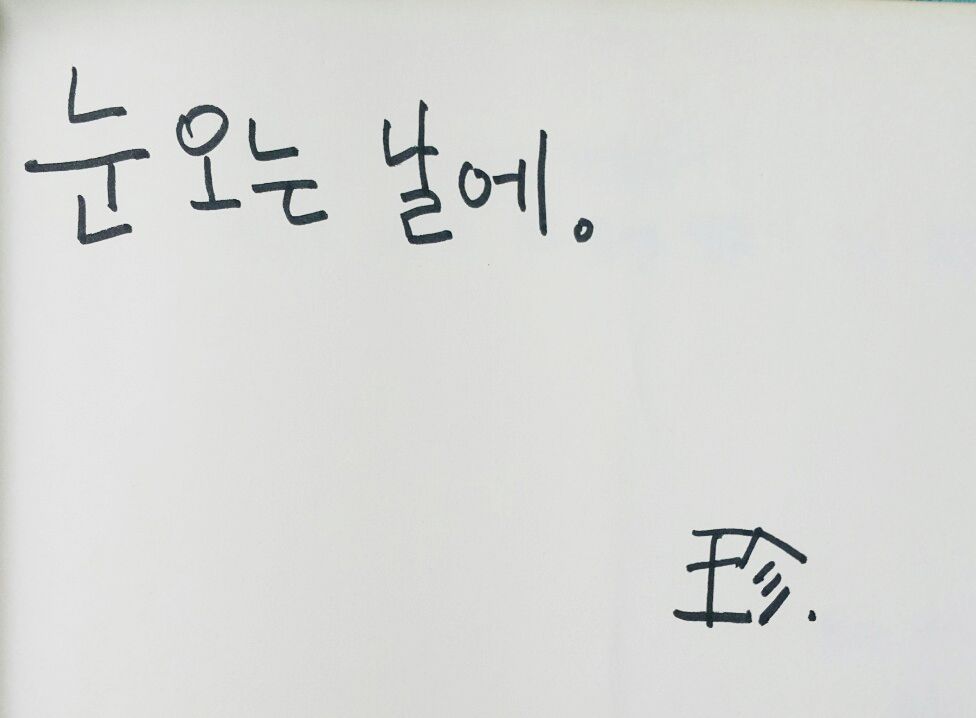 눈 오는 날에。
珍.